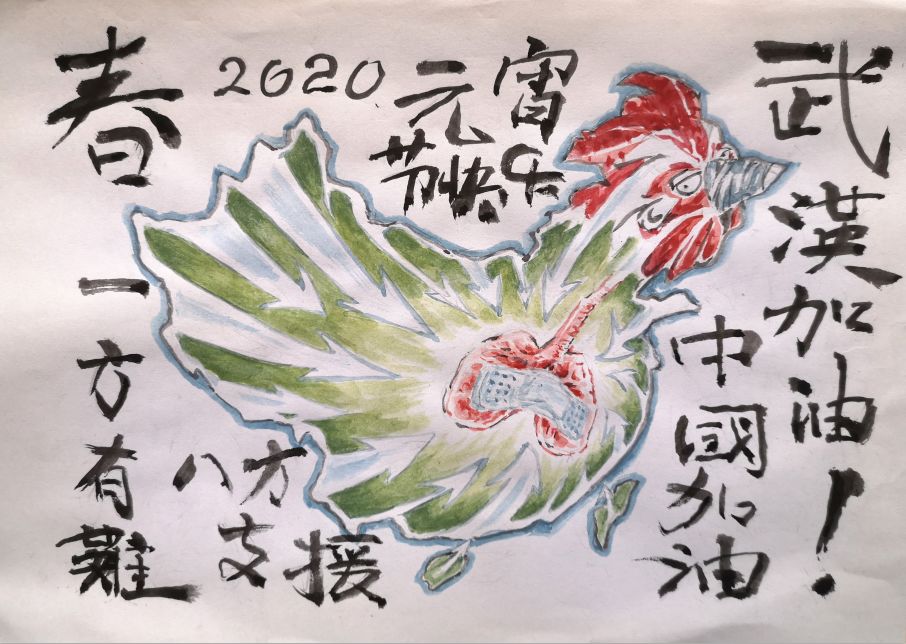 春
2020 元宵
节快乐
武漢加油！
中國加油
一方有難
八方支援